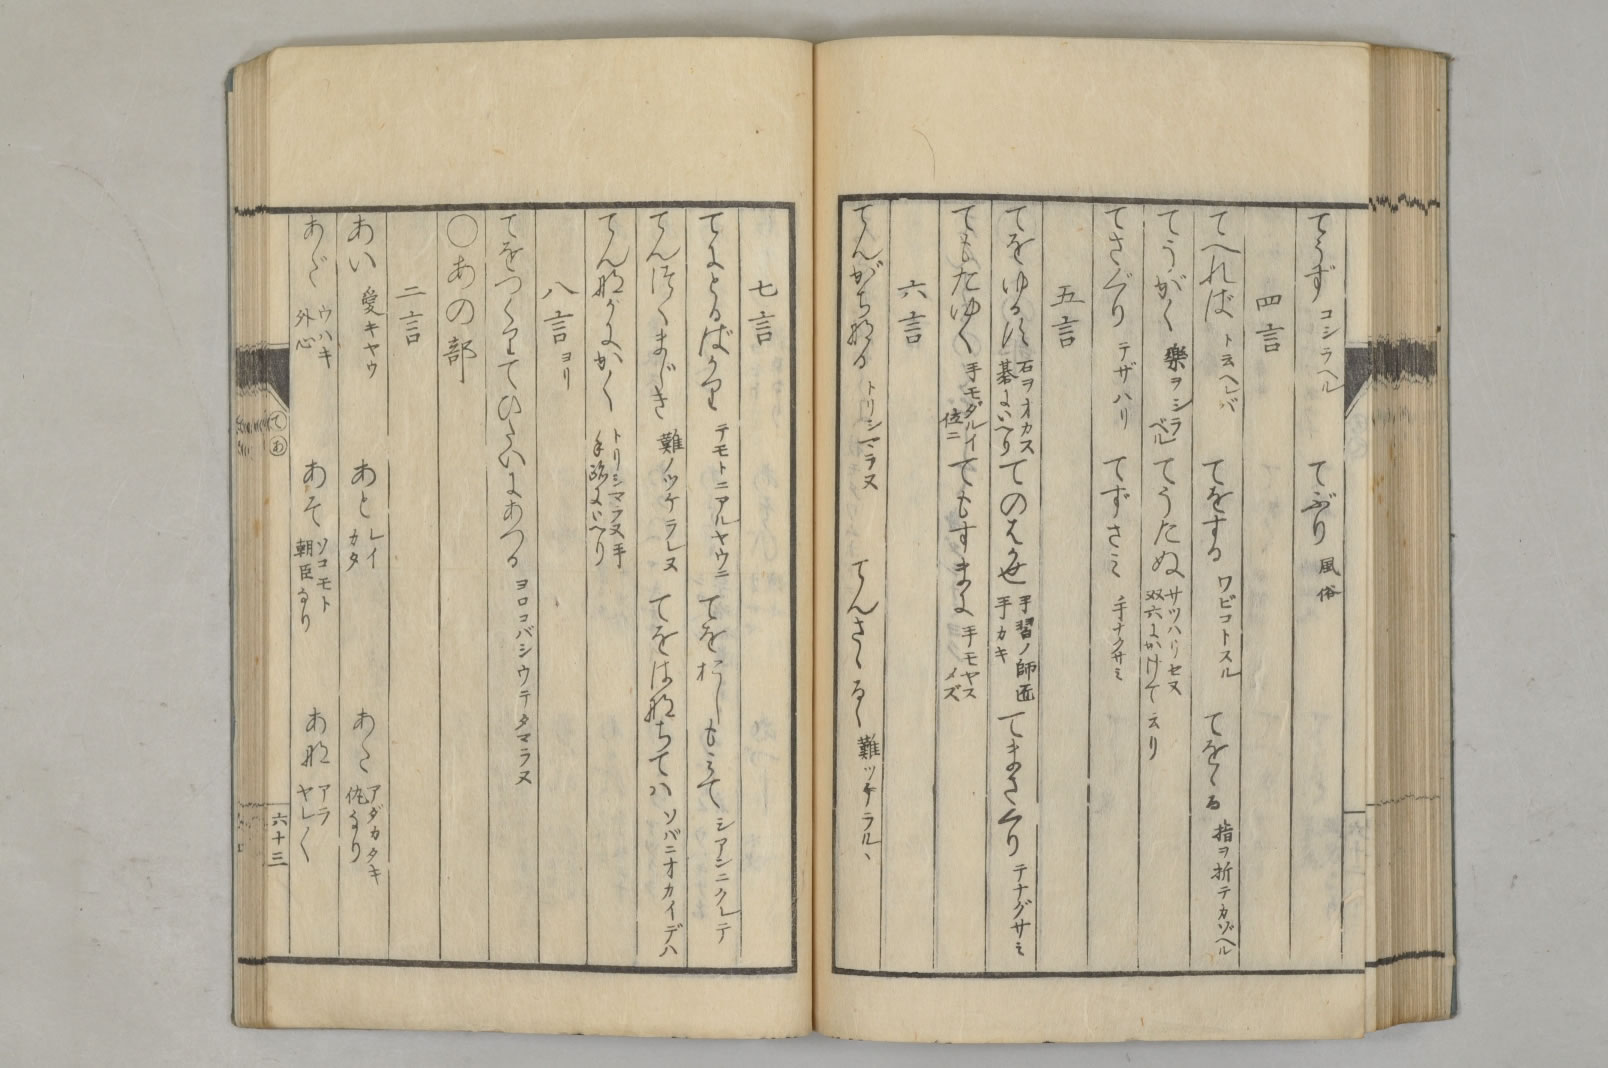 てうず コシラヘル てぶり 風俗
四言
てへれば ト云ヘレバ てをする ワビコトスル てをゝる 指ヲ折テカゾヘル
てうがく 樂ヲシラベル てうたぬ サツハリセヌ 双六にかけて云り
てさぐり テザハリ てずさミ 手ナグサミ
五言
てをゆるす 石ヲオカス 碁にいへり てのはかせ 手習ノ師匠 手カキ てまさぐり テナグサミ
てもたゆく 手モダルイ位ニ てもすまに 手モヤスメズ
六言
てんがちなる トリシマラヌ てんさゝるゝ 難ツケラルヽ
七言
てにとるばかり テモトニアルヤウニ てをおしもみて シアンニクレテ
てんつくまじき 難ノツケラレヌ てをはなちてハ ソバニオカイデハ
てんながにかく トリシマラヌ手 手跡にいへり
八言ヨリ
てをつくりてひたいにあつる ヨロコバシウテタマラヌ
〇あの部
二言
あい 愛キヤウ あと レイ カタ あた アダカタキ 仇なり
あだ ウハキ 外心 あそ ソコモト 朝臣なり あな アラ ヤレ〱
てあ
六十三